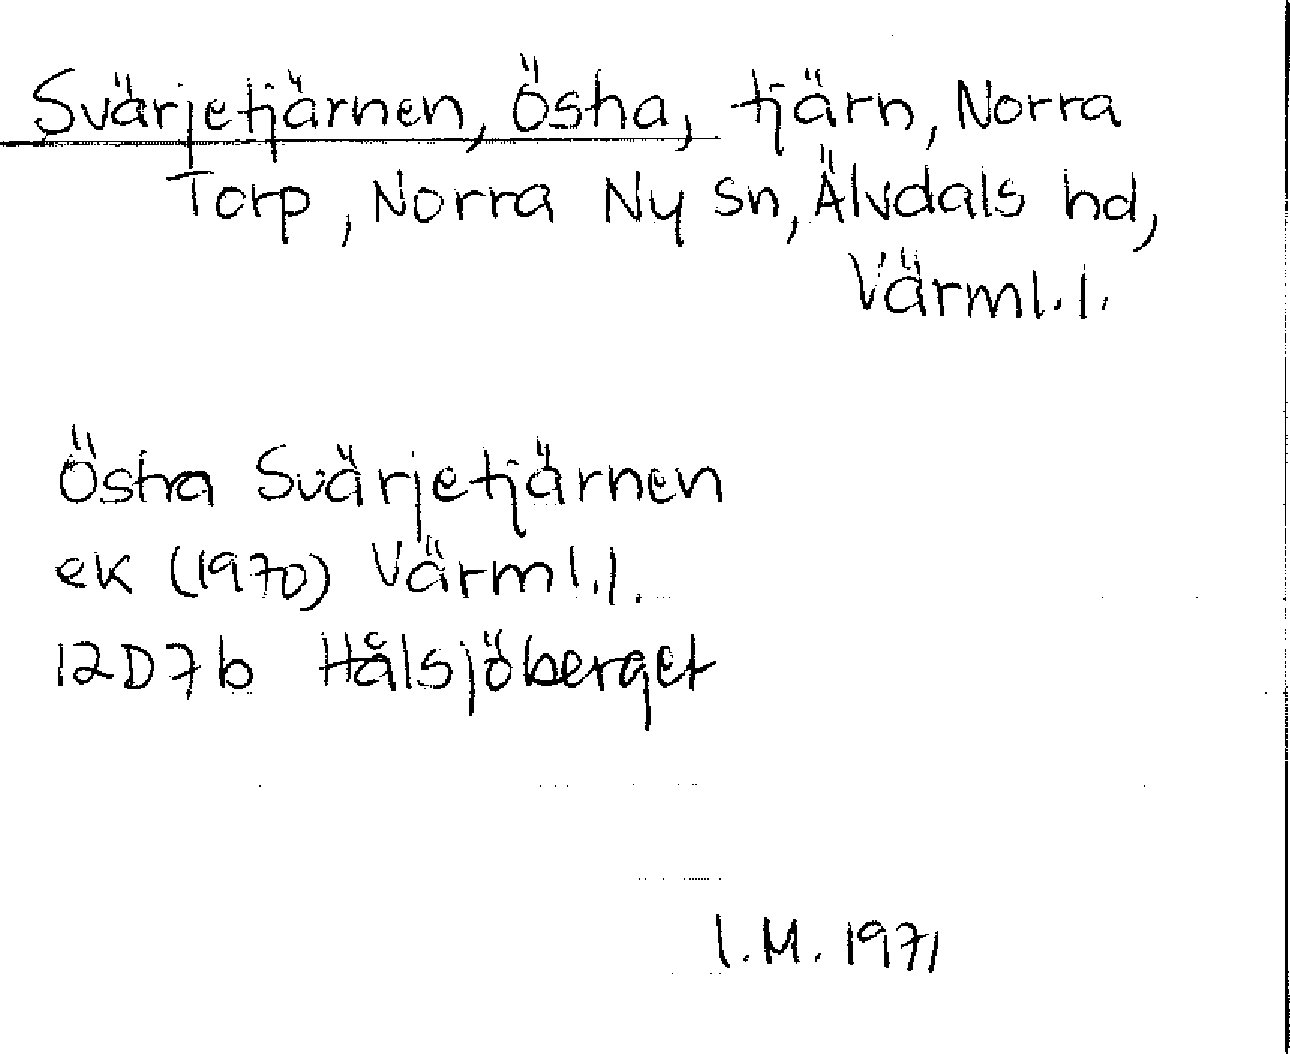 Svärjetjärnen, Östra, tjärn, Norra
Torp, Norra Ny sn, Älvdals hd,
Värml.l.
Östra Svärjetjärnen
ek (1970) Värml.l.
12D7b Hålsjöberget
I.M. 1971